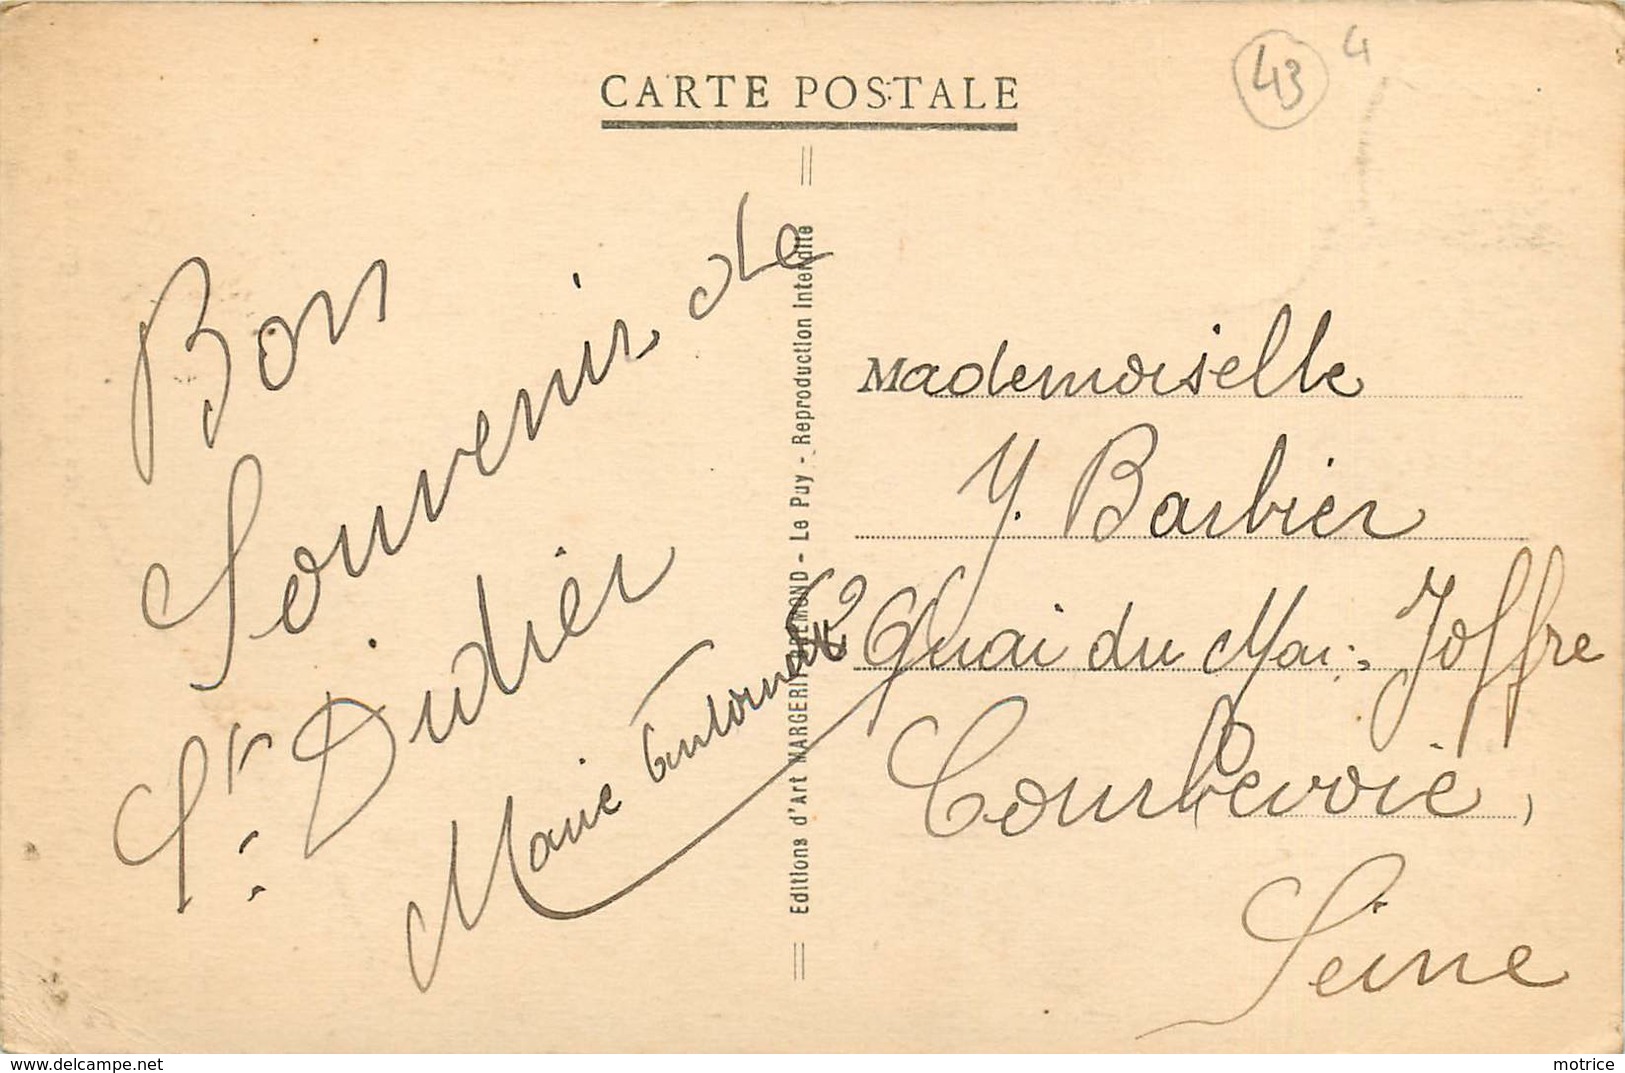 CARTE POSTALE
43
4
Bon
Souvenir de
St. Didier
Marie
Editions d'Art MARGERIT-BREMOND - Le Puy - Reproduction Interdite
Mademoiselle
Y. Barbier
Quai du Mal. Joffre
Courbevoie,
Seine
https://www.delcampe.net
motrice